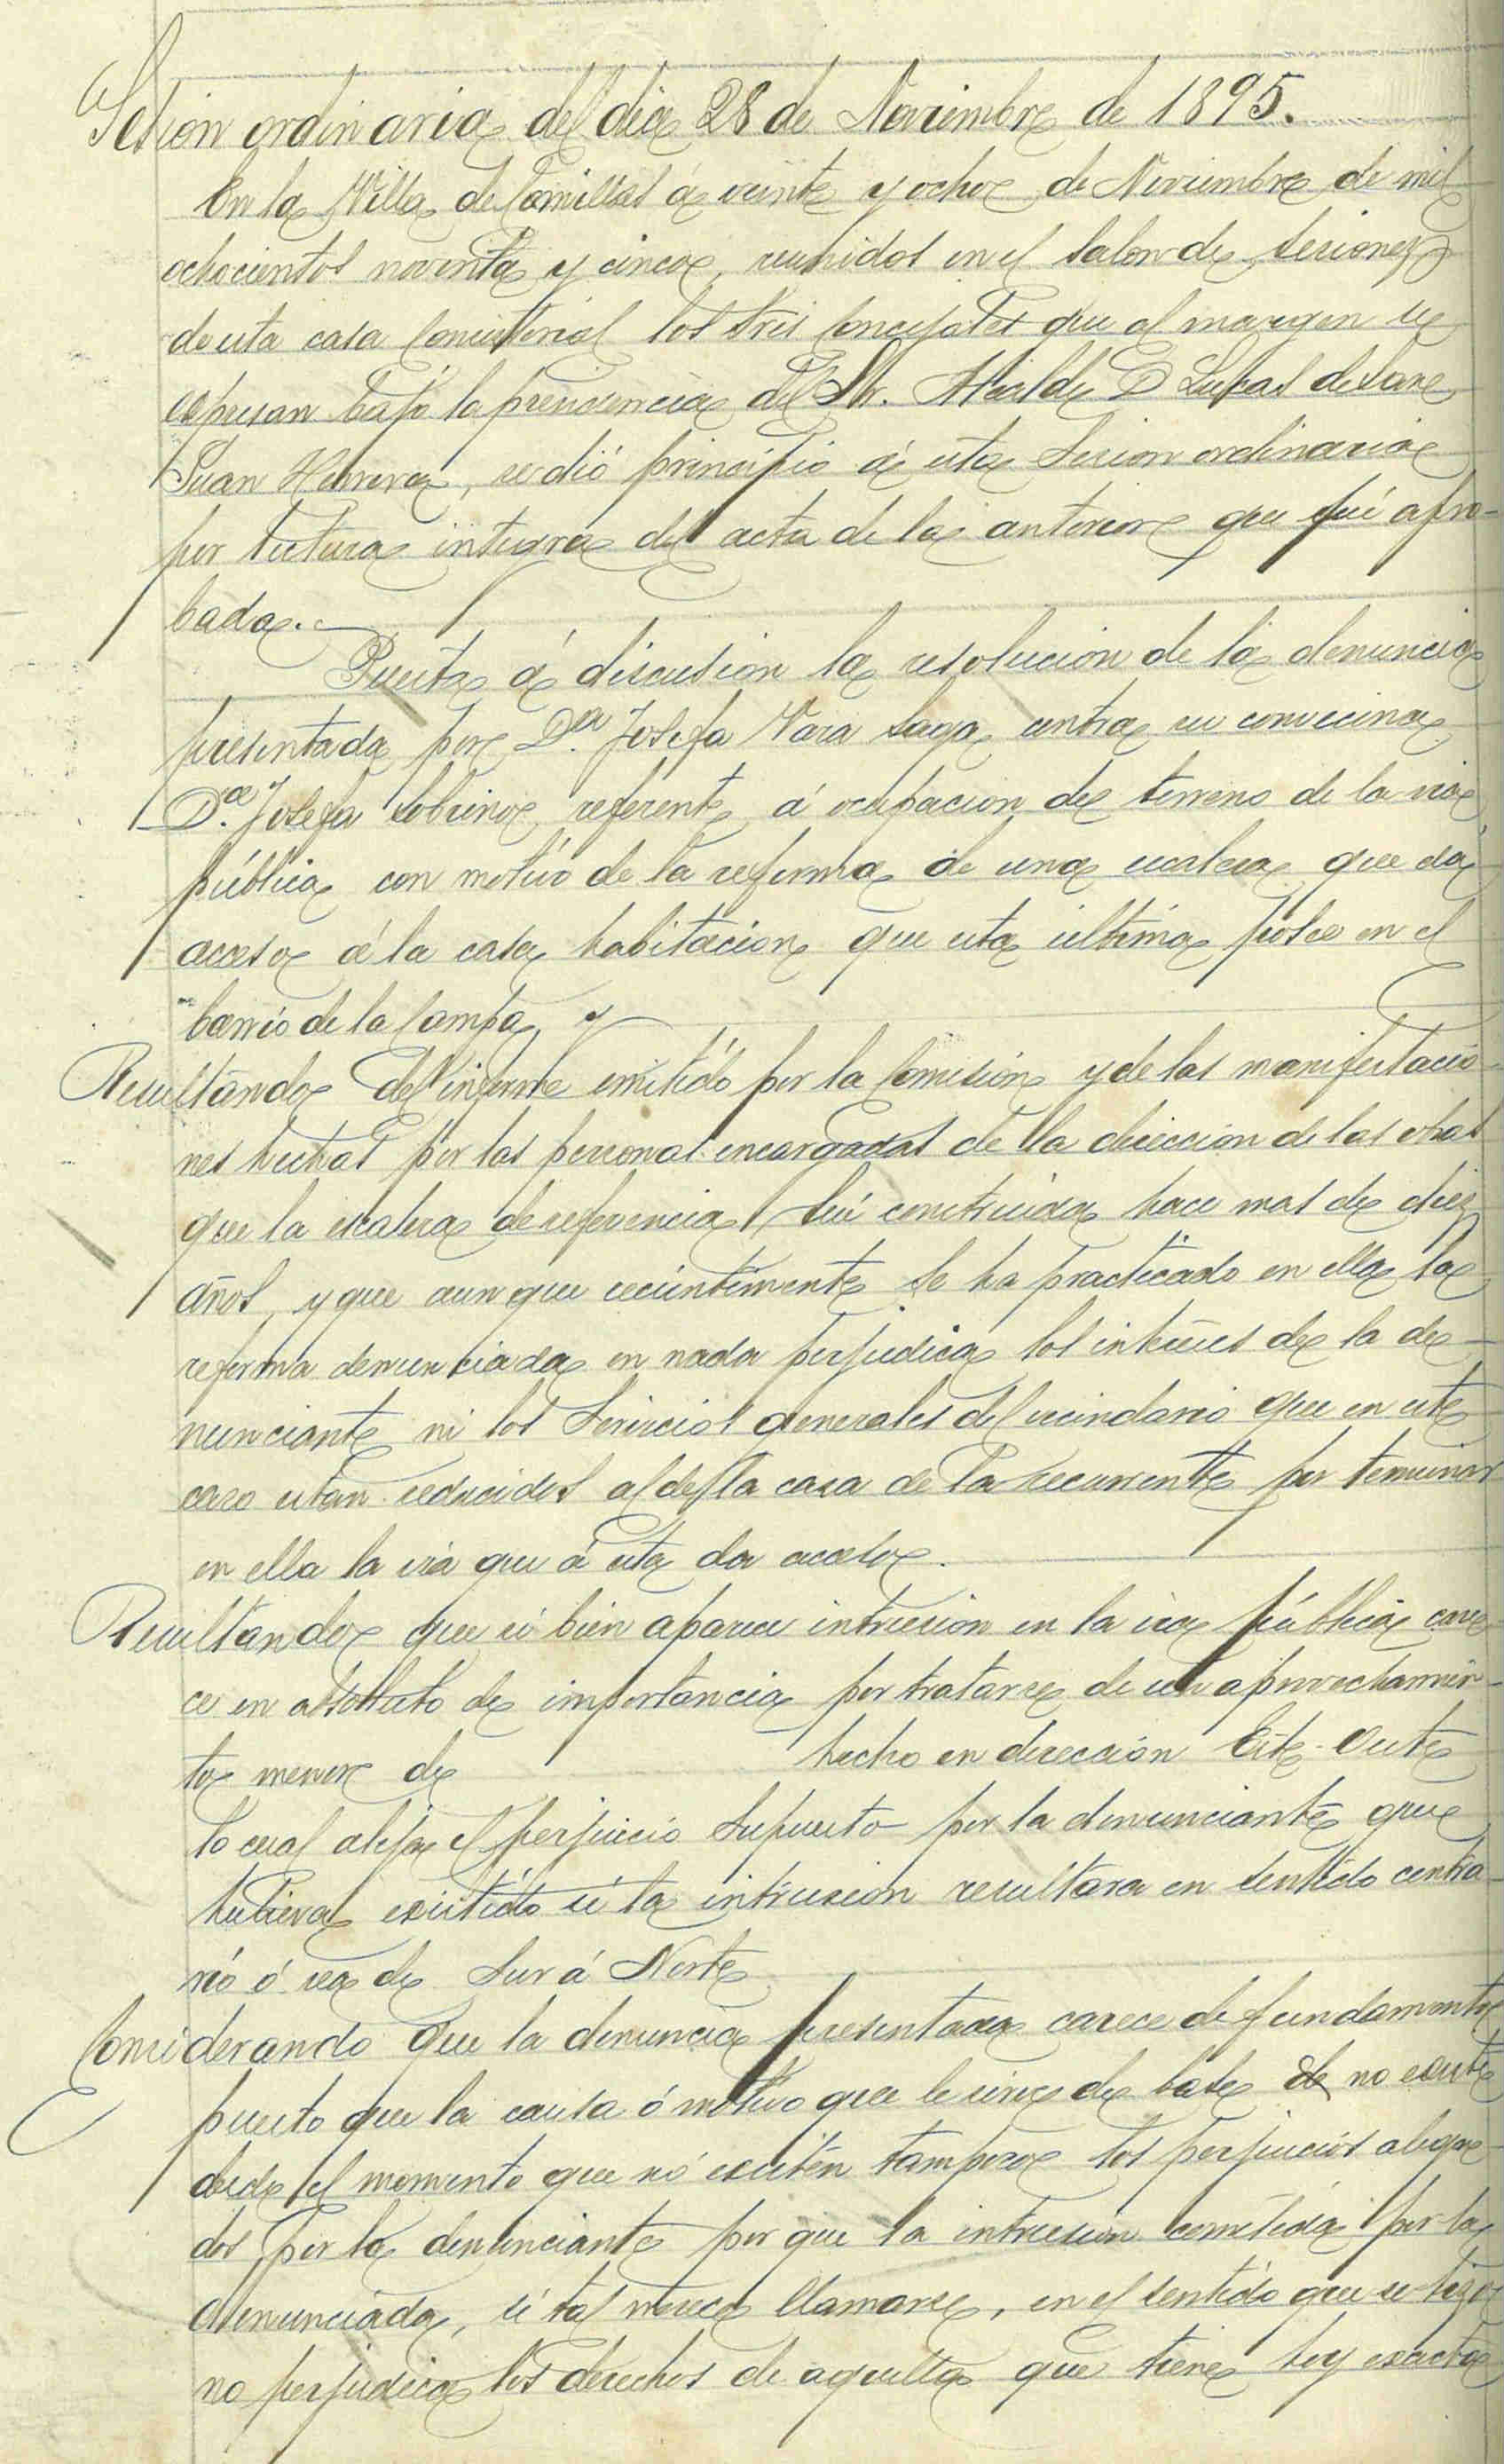 Sesion ordinaria del dia 28 de Noviembre de 1895.
En la Villa de Comillas á veinte y ocho de Noviembre de mil
ochocientos noventa y cinco, reunidos en el salon de sesiones
de esta casa Consistorial los tres Concejales que al margen se
espresan bajo la presidencia del Sr. Alcalde D Lucas de San
Juan Herrera, se dió principio á esta sesion ordinaria
por lectura integra del acta de la anterior que fué apro-
bada.
Puesta á discusion la resolucion de la denuncia
presentada por D.ª Josefa Vara contra su convecina
D.ª Josefa Sobrino, referente á ocupacion de terreno de la via
pública con motivo de la reforma de una escalera que da
acceso á la casa habitacion que esta última posee en el
barrio de la Campa, y
Resultando del informe emitido por la Comision y de las manifestacio-
nes hechas por las personas encargadas de la direccion de las obras
que la escalera de referencia fué construida hace mas de diez
años, y que aun que recientemente se ha practicado en ella la
reforma denunciada en nada perjudica los intereses de la de-
nunciante ni los servicios generales del vecindario que en este
caso estan reducidos al de la casa de la recurrente por terminar
en ella la via que á esta da acceso.
Resultando que si bien aparece intrusion en la via pública care-
ce en absoluto de importancia por tratarse de un aprovechamien-
to menor de hecho en direccion Este-Oeste
lo cual aleja el perjuicio supuesto por la denunciante que
hubiera existido si la intrusion resultara en sentido contra-
rio ó sea de Sur á Norte
Considerando que la denuncia presentada carece de fundamento
puesto que la causa ó motivo que le sirve de base no existe
desde el momento que no existen tampoco los perjuicios alega-
dos por la denunciante por que la intrusion cometida por la
denunciada, si tal merece llamarse, en el sentido que se hizo
no perjudica los derechos de aquella que tiene hoy exacta